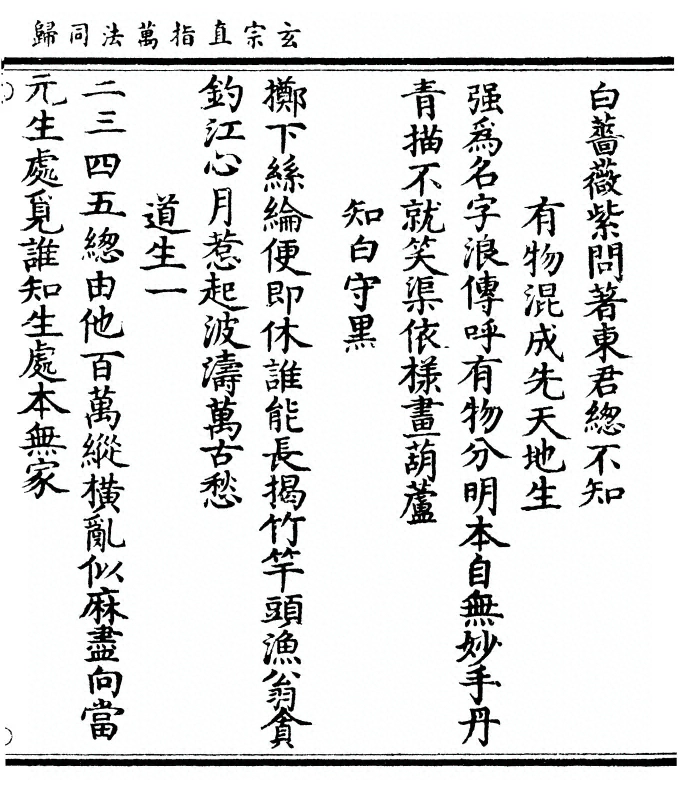 玄宗直指萬法同歸
白薔薇紫問著東君總不知
有物混成先天地生
强爲名字浪傳呼有物分明本自無妙手丹
青描不就笑渠依樣畫葫蘆
知白守黑
擲下絲綸便即休誰能長揭竹竿頭漁翁貪
釣江心月惹起波濤萬古愁
道生一
二三四五總由他百萬縱橫亂似麻盡向當
元生處覓誰知生處本無家